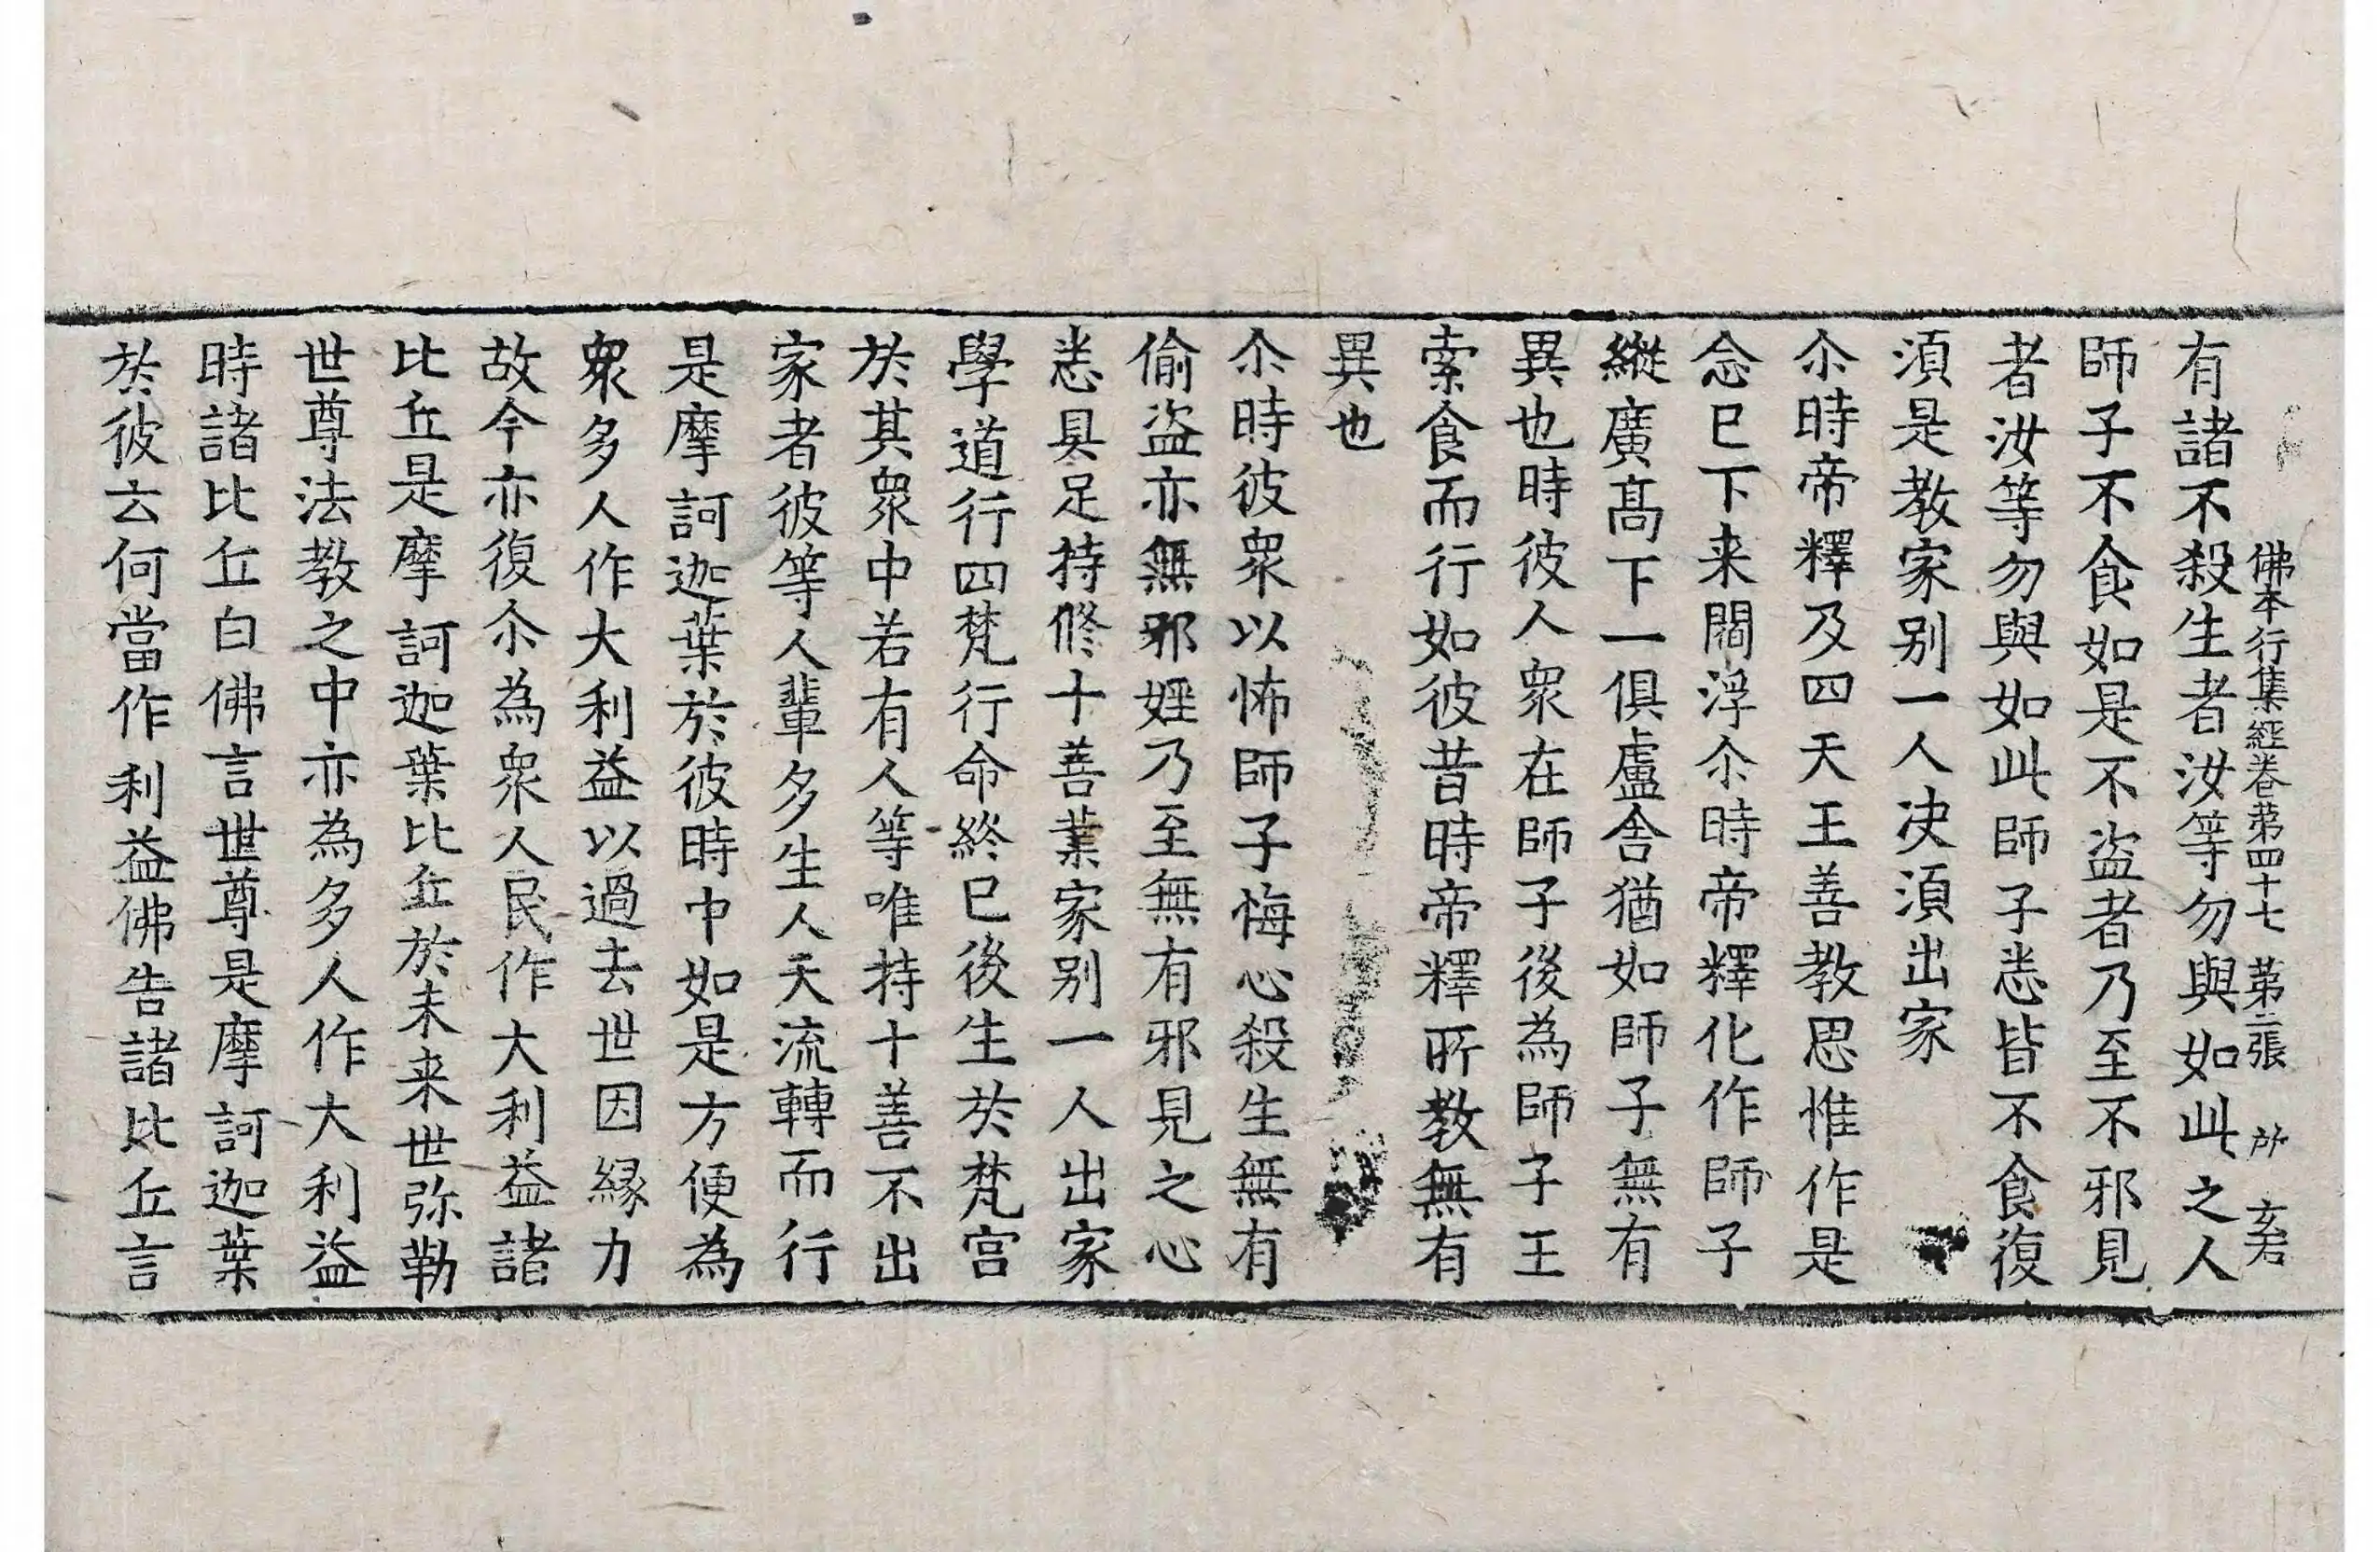 佛本行集經卷第四十七 第二張 所
有諸不殺生者汝等勿與如此之人
師子不食如是不盜者乃至不邪見
者汝等勿與如此師子悉皆不食復
須是教家别一人决須出家
尒時帝釋及四天王善教思惟作是
念已下来閻浮尒時帝釋化作師子
縱廣髙下一俱盧舍猶如師子無有
異也時彼人衆在師子後為師子王
索食而行如彼昔時帝釋所教無有
異也
尒時彼衆以怖師子悔心殺生無有
偷盗亦無邪婬乃至無有邪見之心
悉具足持修十善業家别一人出家
學道行四梵行命終已後生於梵宫
於其衆中若有人等唯持十善不出
家者彼等人輩多生人天流轉而行
是摩訶迦葉於彼時中如是方便為
衆多人作大利益以過去世因縁力
故今亦復尒為衆人民作大利益諸
比丘是摩訶迦葉比丘於未来世弥勒
世尊法教之中亦為多人作大利益
時諸比丘白佛言世尊是摩訶迦葉
於彼云何當作利益佛告諸比丘言